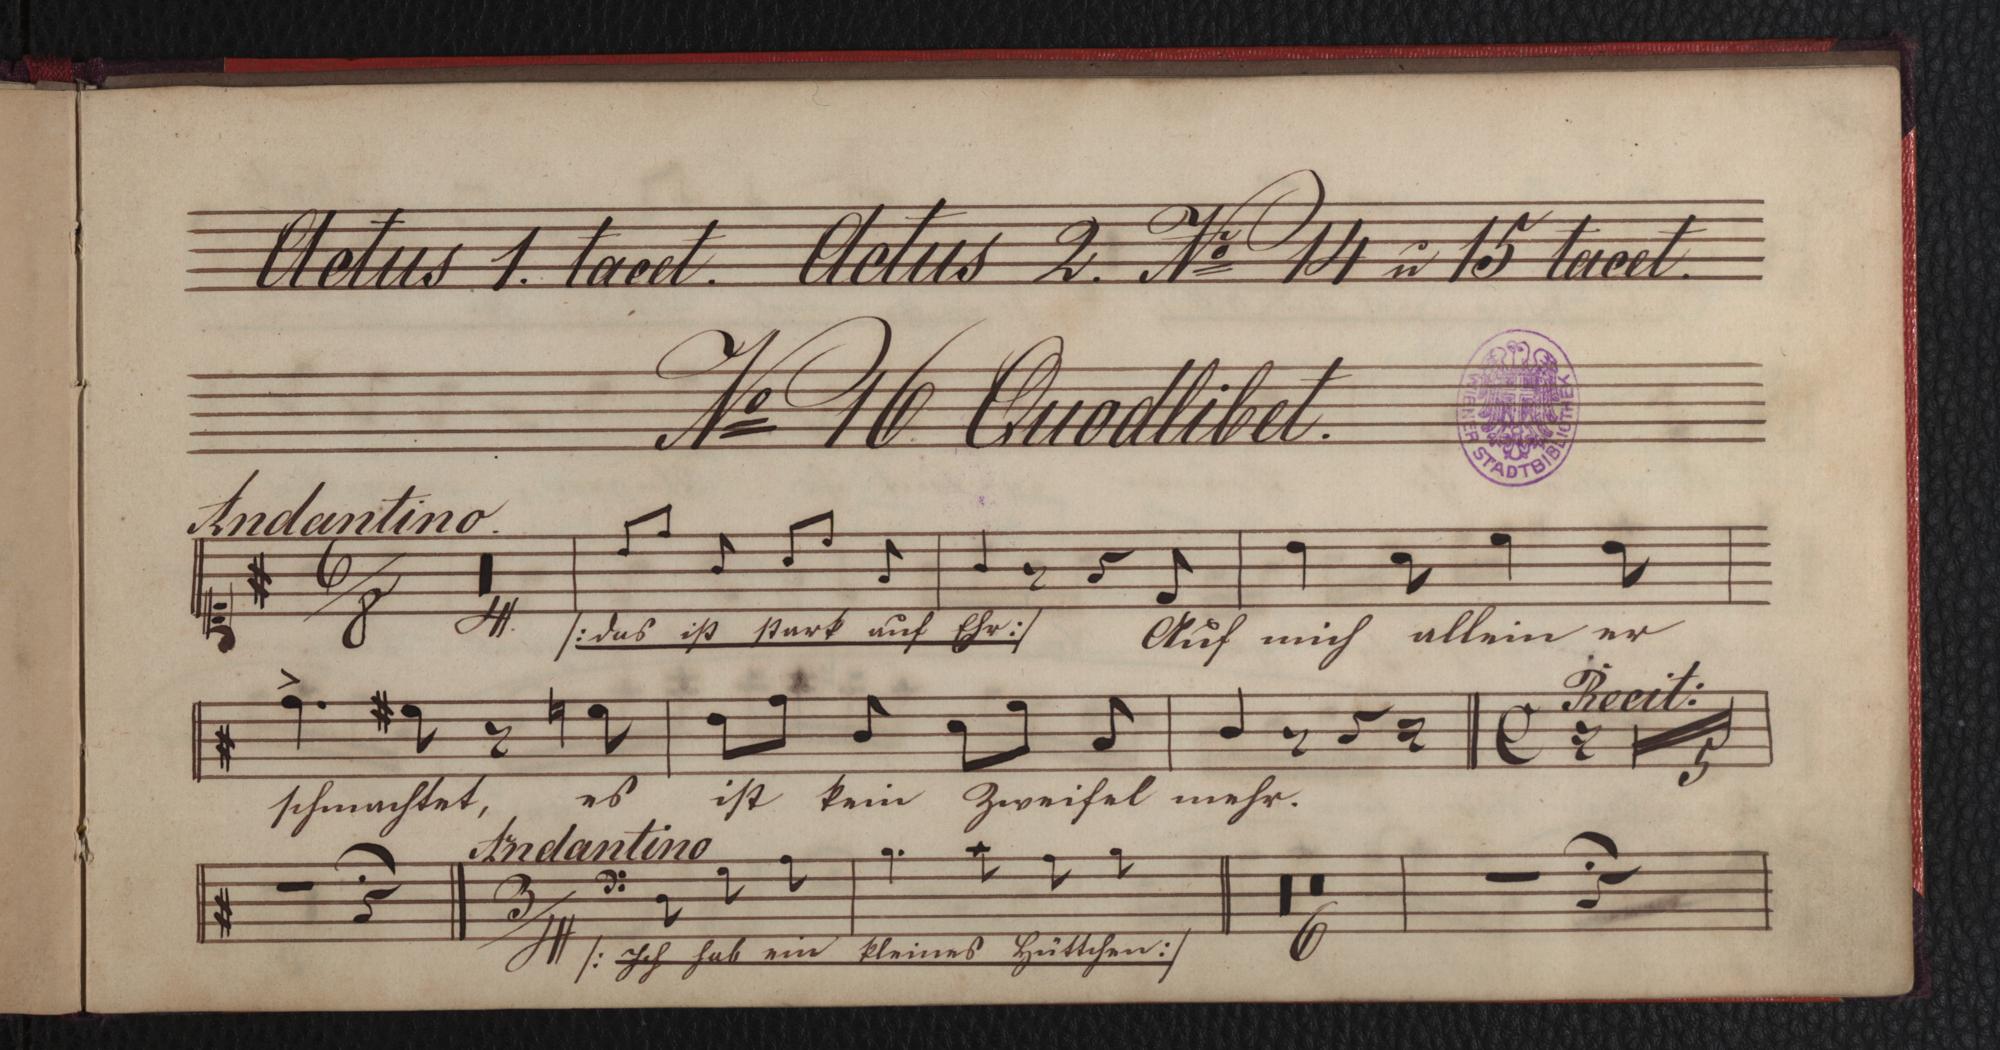 Actus 1. tacet. Actus 2. No 14 u 15 tacet.
No 16 Quodlibet.
WIENER STADTBIBLIOTHEK
Andantino.
6/8 4
/: das ist stark auf Ehr :/ Auf mich allein er
Recit:
5
schmachtet, es ist kein Zweifel mehr.
Andantino
3/4 6
/: Ich hab ein kleines Hüttchen :/